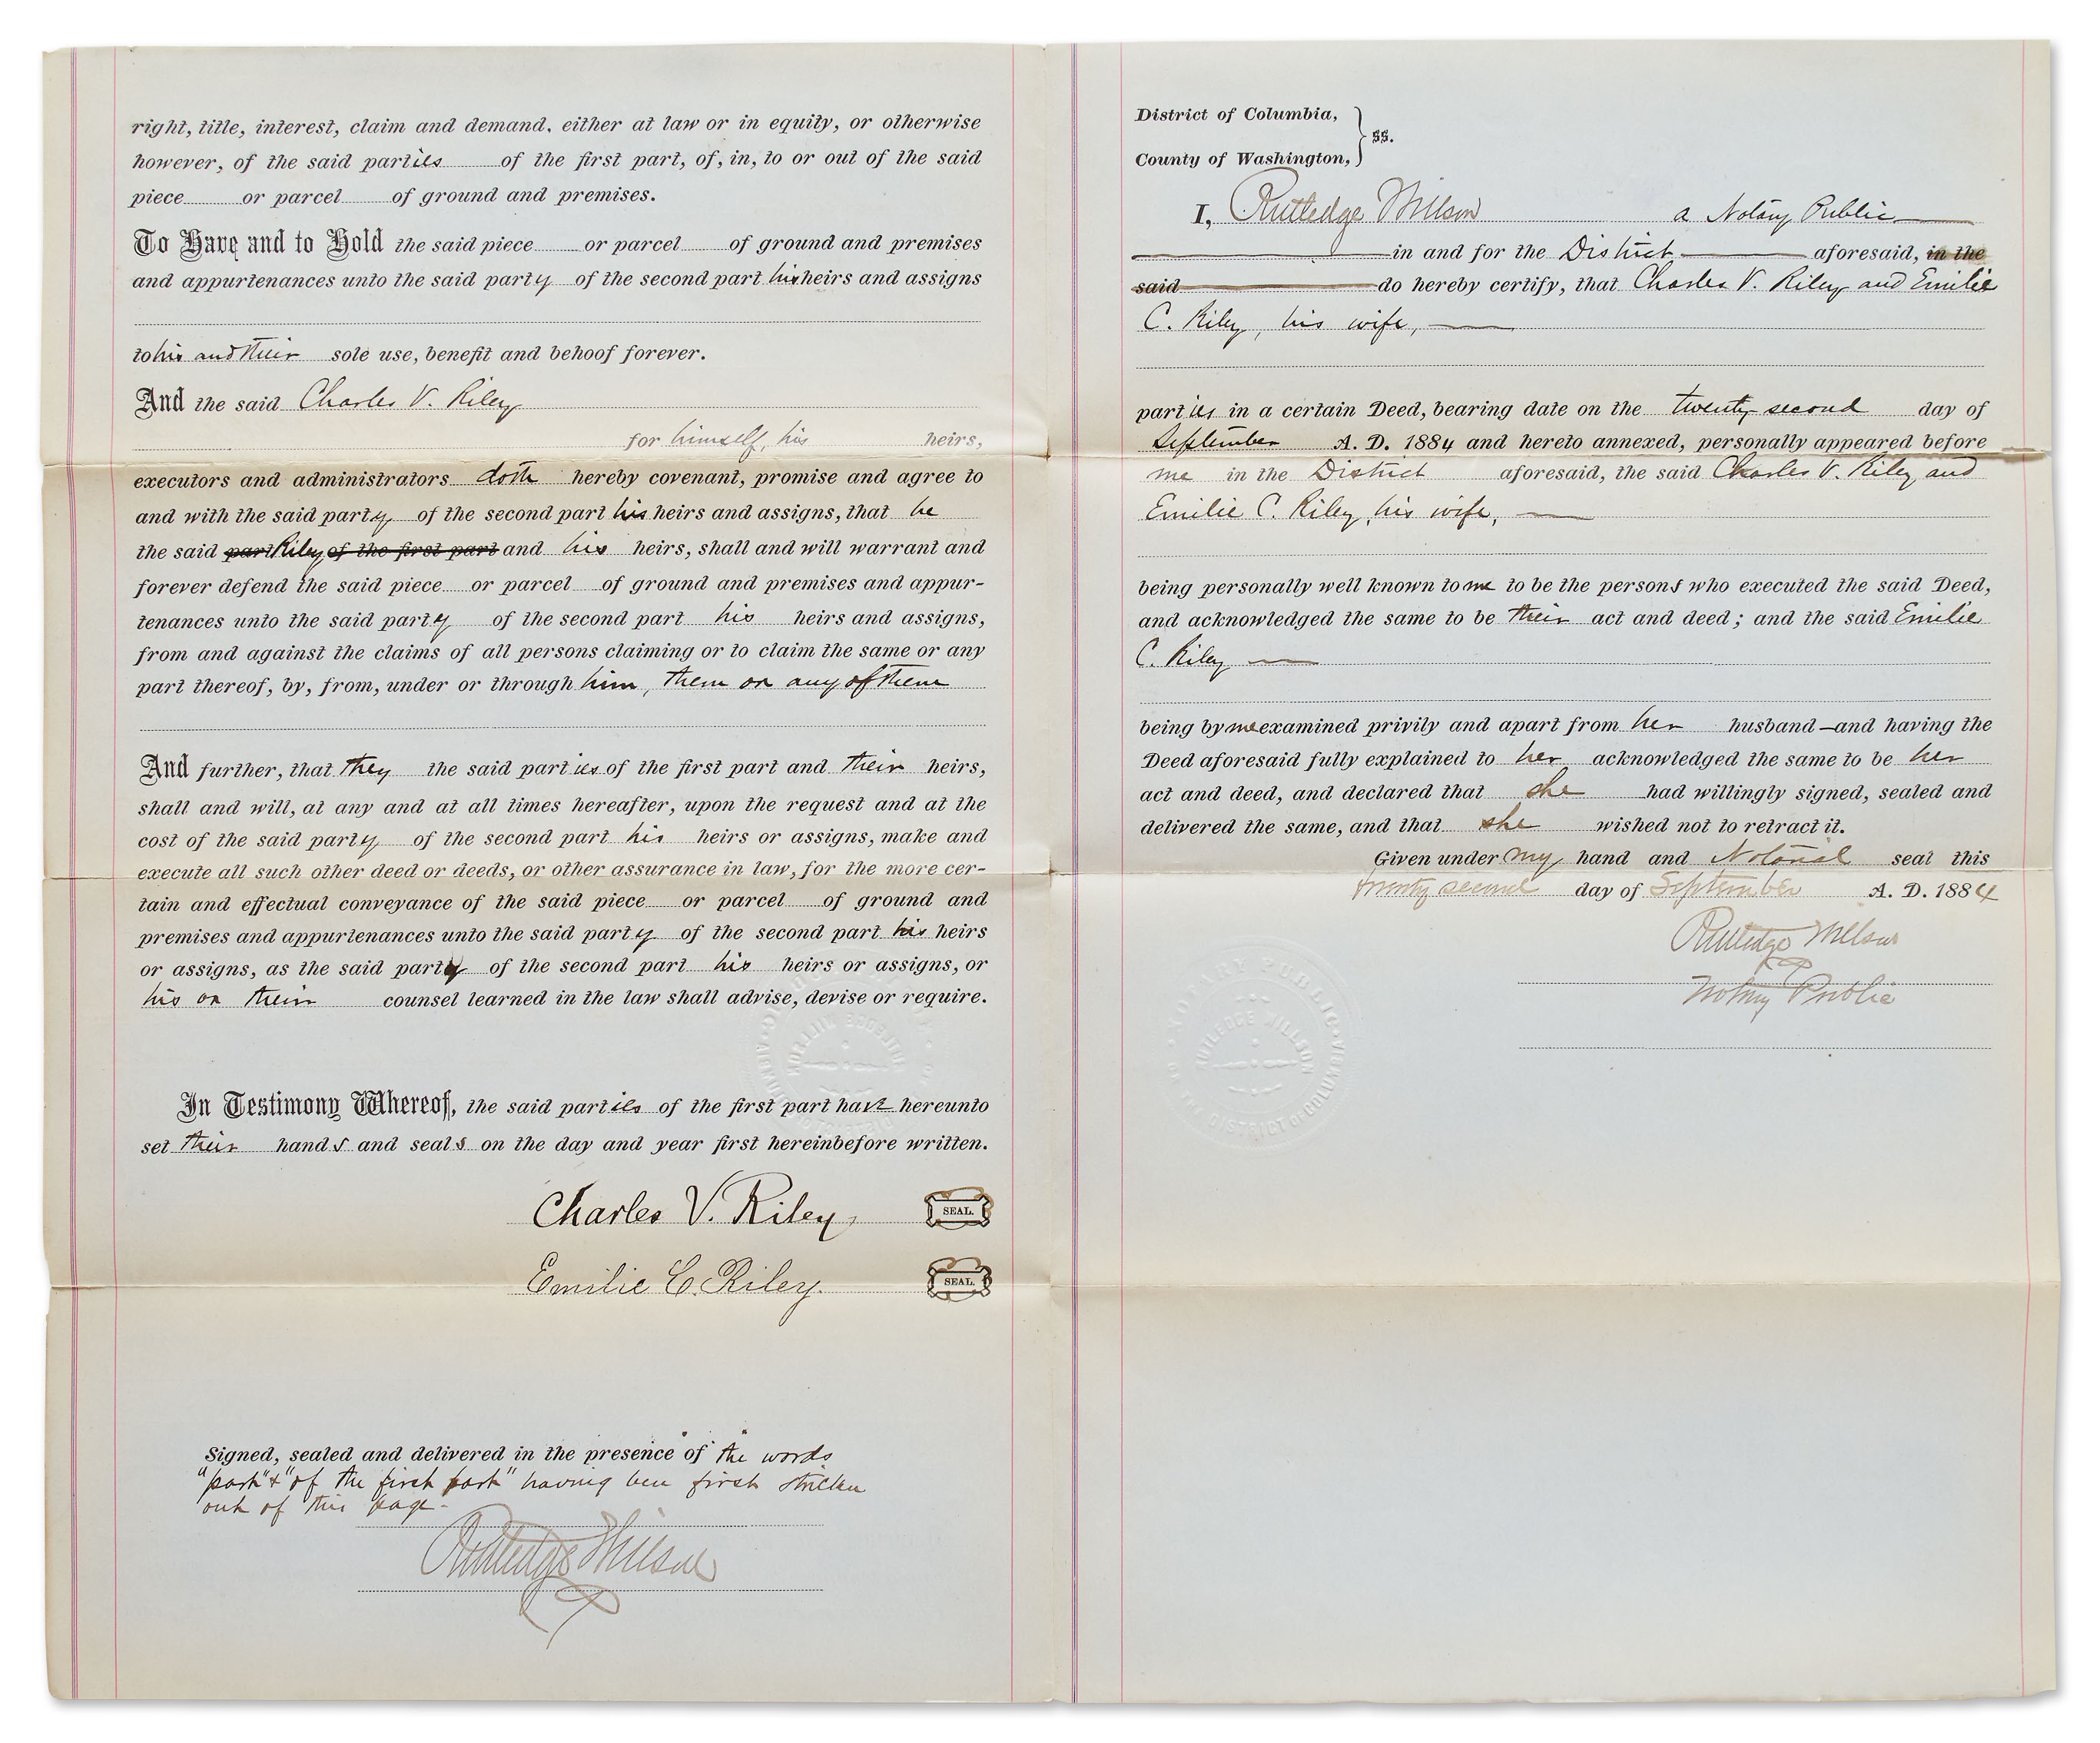 right, title, interest, claim and demand, either at law or in equity, or otherwise
however, of the said parties of the first part, of, in, to or out of the said
piece or parcel of ground and premises.
To Have and to Hold the said piece or parcel of ground and premises
and appurtenances unto the said party of the second part his heirs and assigns
to his and their sole use, benefit and behoof forever.
And the said Charles V. Riley
for himself, his heirs,
executors and administrators doth hereby covenant, promise and agree to
and with the said party of the second part his heirs and assigns, that he
the said part Riley of the first part and his heirs, shall and will warrant and
forever defend the said piece or parcel of ground and premises and appur-
tenances unto the said party of the second part his heirs and assigns,
from and against the claims of all persons claiming or to claim the same or any
part thereof, by, from, under or through him, them or any of them
And further, that they the said parties of the first part and their heirs,
shall and will, at any and at all times hereafter, upon the request and at the
cost of the said party of the second part his heirs or assigns, make and
execute all such other deed or deeds, or other assurance in law, for the more cer-
tain and effectual conveyance of the said piece or parcel of ground and
premises and appurtenances unto the said party of the second part his heirs
or assigns, as the said party of the second part his heirs or assigns, or
his or their counsel learned in the law shall advise, devise or require.
In Testimony Whereof, the said parties of the first part have hereunto
set their hands and seals on the day and year first hereinbefore written.
Charles V. Riley SEAL.
Emilie C. Riley. SEAL.
Signed, sealed and delivered in the presence of the words
"part" & "of the first part" having been first stricken
out of this page-
Rutledge Willson
District of Columbia,
County of Washington, } ss.
I, Rutledge Willson a Notary Public
in and for the District aforesaid, in the
said do hereby certify, that Charles V. Riley and Emilie
C. Riley, his wife,
parties in a certain Deed, bearing date on the twenty second day of
September A. D. 1884 and hereto annexed, personally appeared before
me in the District aforesaid, the said Charles V. Riley and
Emilie C. Riley, his wife,
being personally well known to me to be the persons who executed the said Deed,
and acknowledged the same to be their act and deed; and the said Emilie
C. Riley
being by me examined privily and apart from her husband—and having the
Deed aforesaid fully explained to her acknowledged the same to be her
act and deed, and declared that she had willingly signed, sealed and
delivered the same, and that she wished not to retract it.
Given under my hand and Notarial seal this
twenty second day of September A. D. 1884
Rutledge Willson
Notary Public
NOTARY PUBLIC
RUTLEDGE WILLSON
OF THE DISTRICT OF COLUMBIA